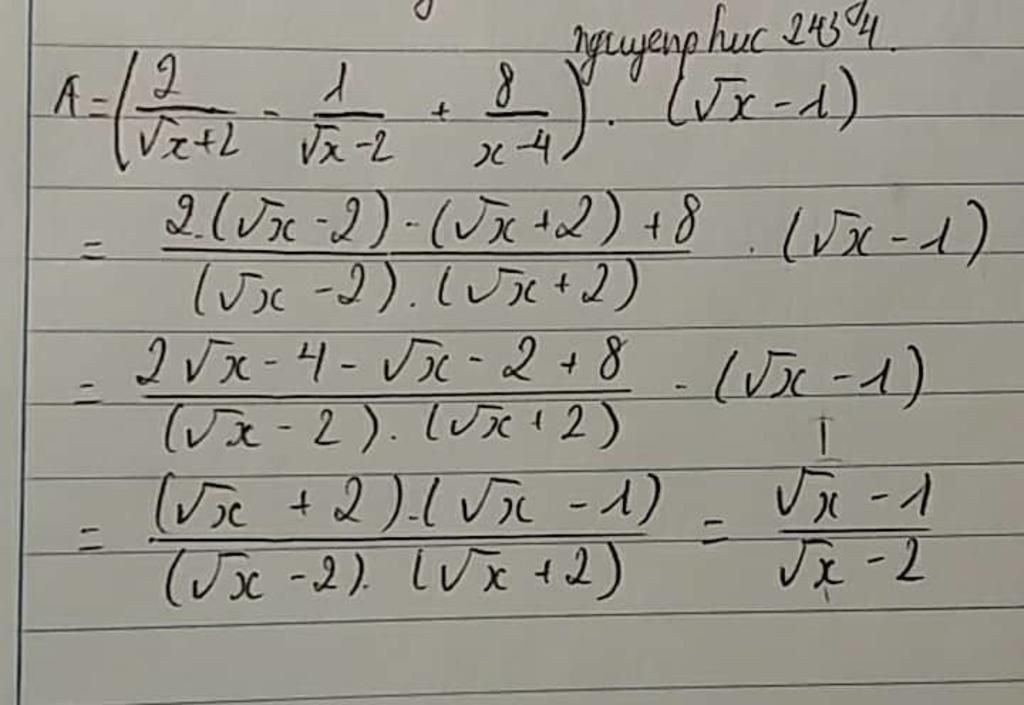 nguyenphuc 24394.
A = (2/(√x+2) - 1/(√x-2) + 8/(x-4)) . (√x - 1)
= (2.(√x - 2) - (√x + 2) + 8)/((√x - 2).(√x + 2)) . (√x - 1)
= (2√x - 4 - √x - 2 + 8)/((√x - 2).(√x + 2)) . (√x - 1)
= ((√x + 2).(√x - 1))/((√x - 2).(√x + 2)) = (√x - 1)/(√x - 2)